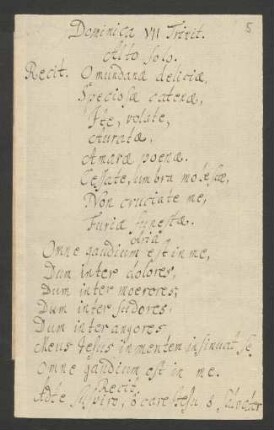 5
Dominica VII Trinit.
Alto Solo.
Recit. O mundanæ deliciæ,
Speciosæ catenæ,
Ite, volate,
Auratæ,
Amaræ poenæ.
Cessate, umbræ molestæ,
Non cruciate me,
Furiæ funestæ.
Aria
Omne gaudium est in me,
Dum inter dolores,
Dum inter moerores,
Dum inter sudores,
Dum inter angores
Meus Jesus in mentem insinuat se
Omne gaudium est in me.
Recit.
Ad te suspiro, ô care Jesu ô Salvator